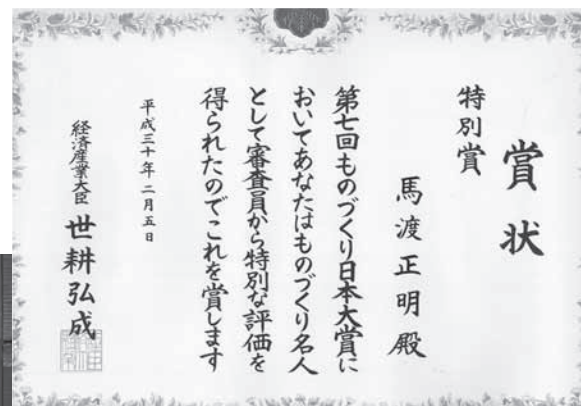 賞状
特別賞
馬渡正明殿
第七回ものづくり日本大賞に
おいてあなたはものづくり名人
として審査員から特別な評価を
得られたのでこれを賞します
平成三十年二月五日
経済産業大臣 世耕弘成